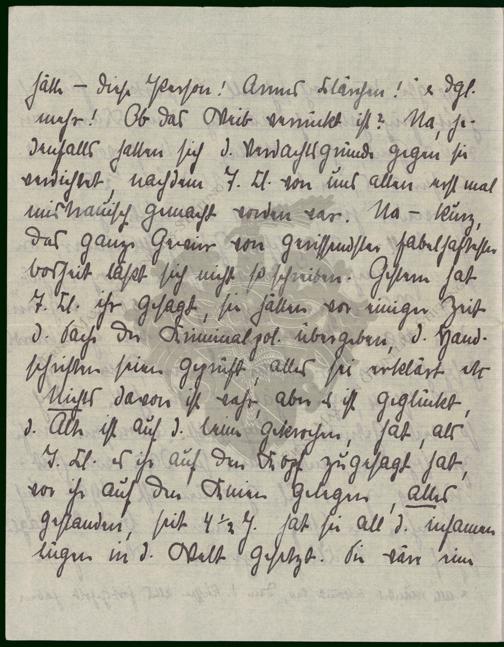 hätte – diese Person! Armes Klärchen! u. dgl.
mehr! Ob das Weib verrückt ist? Na, je-
denfalls hatten sich d. Verdachtsgründe gegen sie
verdichtet, nachdem T. Kl. von uns allen erst mal
mistrauisch gemacht worden war. Na – kurz,
das ganze Gewirr von gerissendster fabelhaftester
Bosheit läßt sich nicht so schreiben. Gestern hat
T. Kl. ihr gesagt, sie hätten vor einiger Zeit
d. Sache der Kriminalpol. übergeben, d. Hand-
schriften seien geprüft, alles sei erklärt etc
Nichts davon ist wahr, aber es ist geglückt,
d. Alte ist auf d. Leim gekrochen, hat, als
T. Kl. es ihr auf den Kopf zugesagt hat,
vor ihr auf den Knien gelegen, alles
gestanden, seit 4 1/2 J. hat sie all d. infamen
Lügen in d. Welt gesetzt. Sie wäre eine